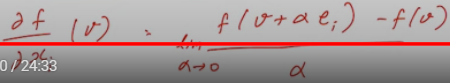 ∂f/∂x_i (v) = lim_{α→0} (f(v+αe_i) - f(v))/α
0/24:33